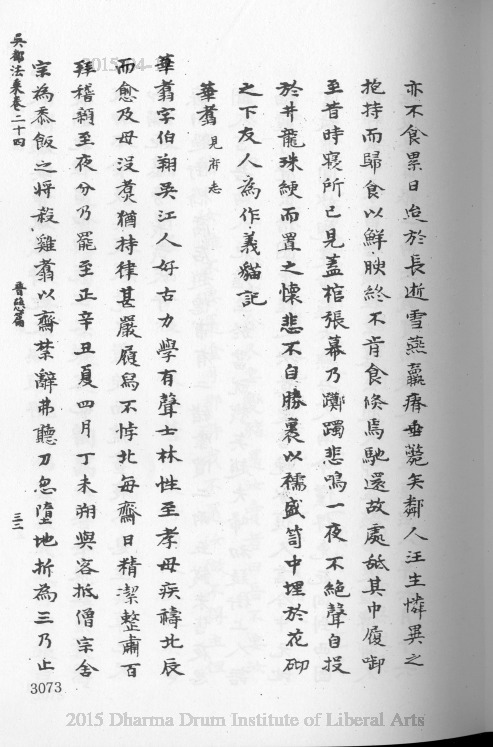 亦不食累日迨於長逝雪燕羸瘠垂斃矣鄰人汪生憐異之
抱持而歸食以鮮腴終不肯食倏焉馳還故處舐其巾履啣
至昔時寢所已見蓋棺張幕乃躑躅悲鳴一夜不絕聲自投
於井龍珠綆而置之懷悲不自勝裹以襦盛笥中埋於花砌
之下友人為作義貓記
華翥 見府志
華翥字伯翔吳江人好古力學有聲士林性至孝母疾禱北辰
而愈及母沒翥猶持律甚嚴履舄不悖北每齋日精潔整肅百
拜稽顙至夜分乃罷至正辛丑夏四月丁未朔與客抵僧宗舍
宗為黍飯之將殺雞翥以齋禁辭弗聽刀忽墮地折為三乃止
吳都法乘卷二十四
晉慈篇
三二
3073
2015-04-
2015 Dharma Drum Institute of Liberal Arts